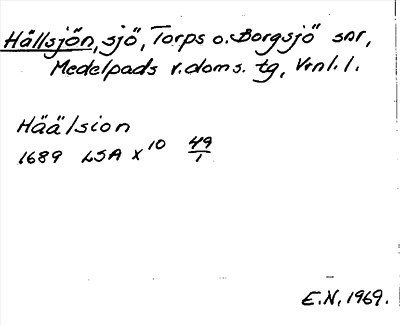 Hållsjön, sjö, Torps o. Borgsjö snr,
Medelpads v. doms. tg, Vnl. l.
Häälsion
1689 LSA X 10 49/1
E.N. 1969.